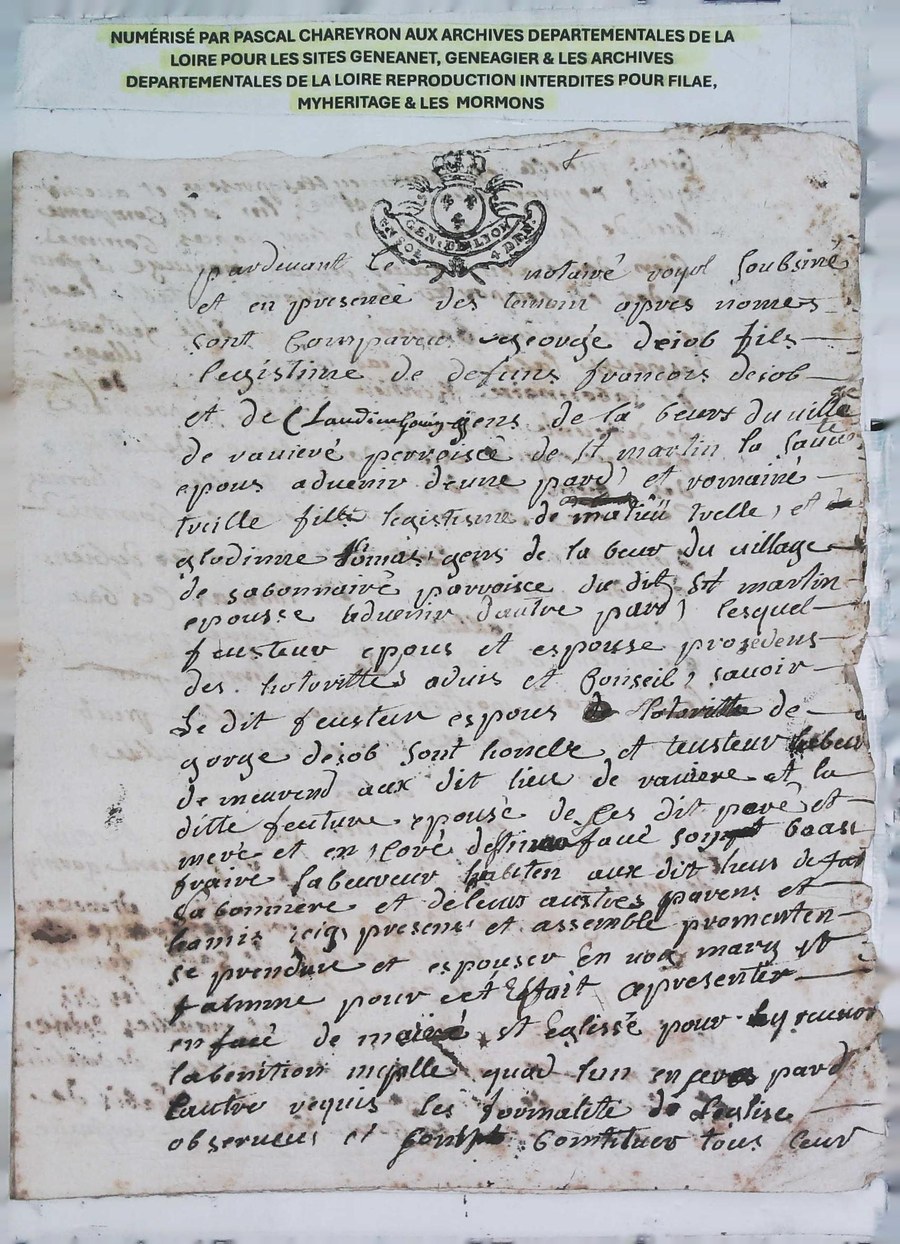 NUMÉRISÉ PAR PASCAL CHAREYRON AUX ARCHIVES DEPARTEMENTALES DE LA
LOIRE POUR LES SITES GENEANET, GENEAGIER & LES ARCHIVES
DEPARTEMENTALES DE LA LOIRE REPRODUCTION INTERDITES POUR FILAE,
MYHERITAGE & LES MORMONS
GEN. D. LION
UN SOL 4 DEN.
pardevant le notaire royol soubsiné
et en presence des temoin apres nomes
sont Compareu george dejob fils
legistime de defuns francois dejob
et de Claudine gens de la beur du village
de vaniere parroisce de st martin la sauvete
epous aduenir deune pard et romaine
treille fille legistisme de matieu trelle et
glodinne tomas gens de la beur du uillage
de sabonnaire parroisce du dit st martin
epousse aduenir dautre pard lesquel
feusteur epous et espousse prosedens
des hotoritte aduis et Conseil savoir
Le dit feusteur espous de lotoritte de
gorge dejob sont honcle et teusteur labeur
de meurend aux dit lieu de vaniere et la
ditte feuture epouse de ses dit pere et
mere et en core
fraire labeureur habiten aux dit lieus de
sabonniere et de leur austres parens et
hamis icy presens et assemble promenten
se prendre et espouser en uoix mary et
famme pour cet Effait apresenter
en face de st Eglisse pour y
labenition quad lun en sera pard
lautre requis les formalite de leglise
observeus et Constituer tous leur